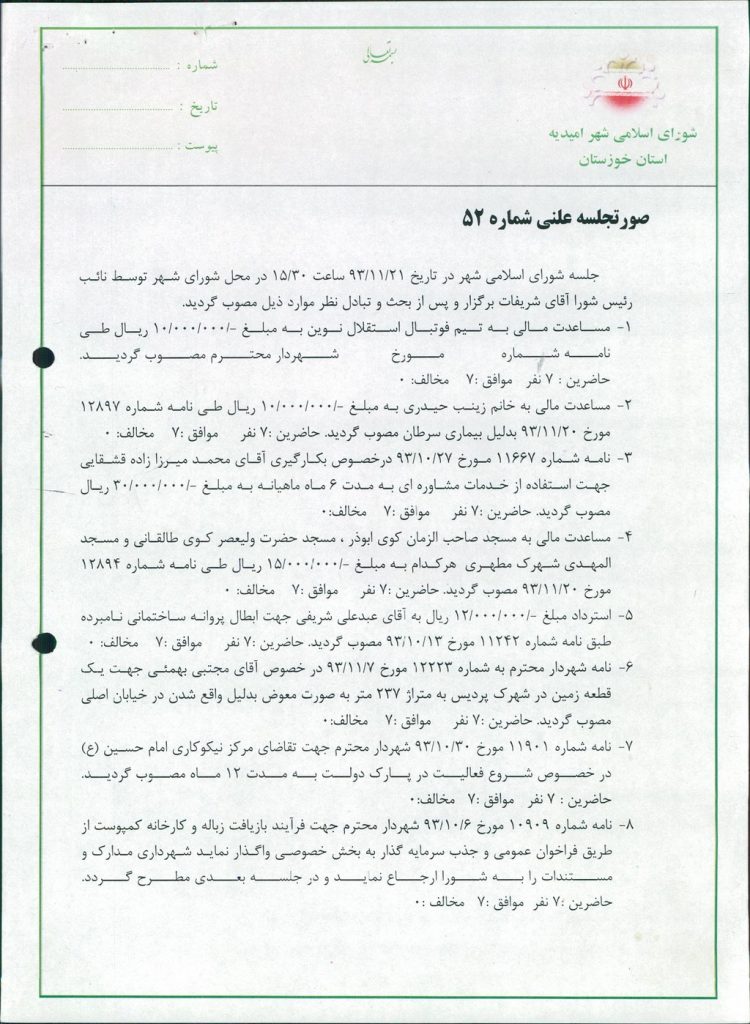 بسمه تعالی
شماره : ........................
تاریخ : ........................
پیوست : ........................
شورای اسلامی شهر امیدیه
استان خوزستان
صورتجلسه علنی شماره ۵۲
جلسه شورای اسلامی شهر در تاریخ ۹۳/۱۱/۲۱ ساعت ۱۵/۳۰ در محل شورای شهر توسط نائب
رئیس شورا آقای شریفات برگزار و پس از بحث و تبادل نظر موارد ذیل مصوب گردید.
۱- مساعدت مالی به تیم فوتبال استقلال نوین به مبلغ -/۱۰/۰۰۰/۰۰۰ ریال طی
نامه شماره مورخ شهردار محترم مصوب گردید.
حاضرین : ۷ نفر موافق :۷ مخالف: ۰
۲- مساعدت مالی به خانم زینب حیدری به مبلغ -/۱۰/۰۰۰/۰۰۰ ریال طی نامه شماره ۱۲۸۹۷
مورخ ۹۳/۱۱/۲۰ بدلیل بیماری سرطان مصوب گردید. حاضرین :۷ نفر موافق :۷ مخالف: ۰
۳- نامه شماره ۱۱۶۶۷ مورخ ۹۳/۱۰/۲۷ درخصوص بکارگیری آقای محمد میرزا زاده قشقایی
جهت استفاده از خدمات مشاوره ای به مدت ۶ ماه ماهیانه به مبلغ -/۳۰/۰۰۰/۰۰۰ ریال
مصوب گردید. حاضرین :۷ نفر موافق :۷ مخالف:۰
۴- مساعدت مالی به مسجد صاحب الزمان کوی ابوذر ، مسجد حضرت ولیعصر کوی طالقانی و مسجد
المهدی شهرک مطهری هرکدام به مبلغ -/۱۵/۰۰۰/۰۰۰ ریال طی نامه شماره ۱۲۸۹۴
مورخ ۹۳/۱۱/۲۰ مصوب گردید. حاضرین :۷ نفر موافق :۷ مخالف: ۰
۵- استرداد مبلغ -/۱۲/۰۰۰/۰۰۰ ریال به آقای عبدعلی شریفی جهت ابطال پروانه ساختمانی نامبرده
طبق نامه شماره ۱۱۲۴۲ مورخ ۹۳/۱۰/۱۳ مصوب گردید. حاضرین :۷ نفر موافق :۷ مخالف: ۰
۶- نامه شهردار محترم به شماره ۱۲۲۲۳ مورخ ۹۳/۱۱/۷ در خصوص آقای مجتبی بهمئی جهت یک
قطعه زمین در شهرک پردیس به متراژ ۲۳۷ متر به صورت معوض بدلیل واقع شدن در خیابان اصلی
مصوب گردید. حاضرین :۷ نفر موافق :۷ مخالف:۰
۷- نامه شماره ۱۱۹۰۱ مورخ ۹۳/۱۰/۳۰ شهردار محترم جهت تقاضای مرکز نیکوکاری امام حسین (ع)
در خصوص شروع فعالیت در پارک دولت به مدت ۱۲ ماه مصوب گردید.
حاضرین : ۷ نفر موافق :۷ مخالف:۰
۸- نامه شماره ۱۰۹۰۹ مورخ ۹۳/۱۰/۶ شهردار محترم جهت فرآیند بازیافت زباله و کارخانه کمپوست از
طریق فراخوان عمومی و جذب سرمایه گذار به بخش خصوصی واگذار نماید شهرداری مدارک و
مستندات را به شورا ارجاع نماید و در جلسه بعدی مطرح گردد.
حاضرین :۷ نفر موافق :۷ مخالف :۰